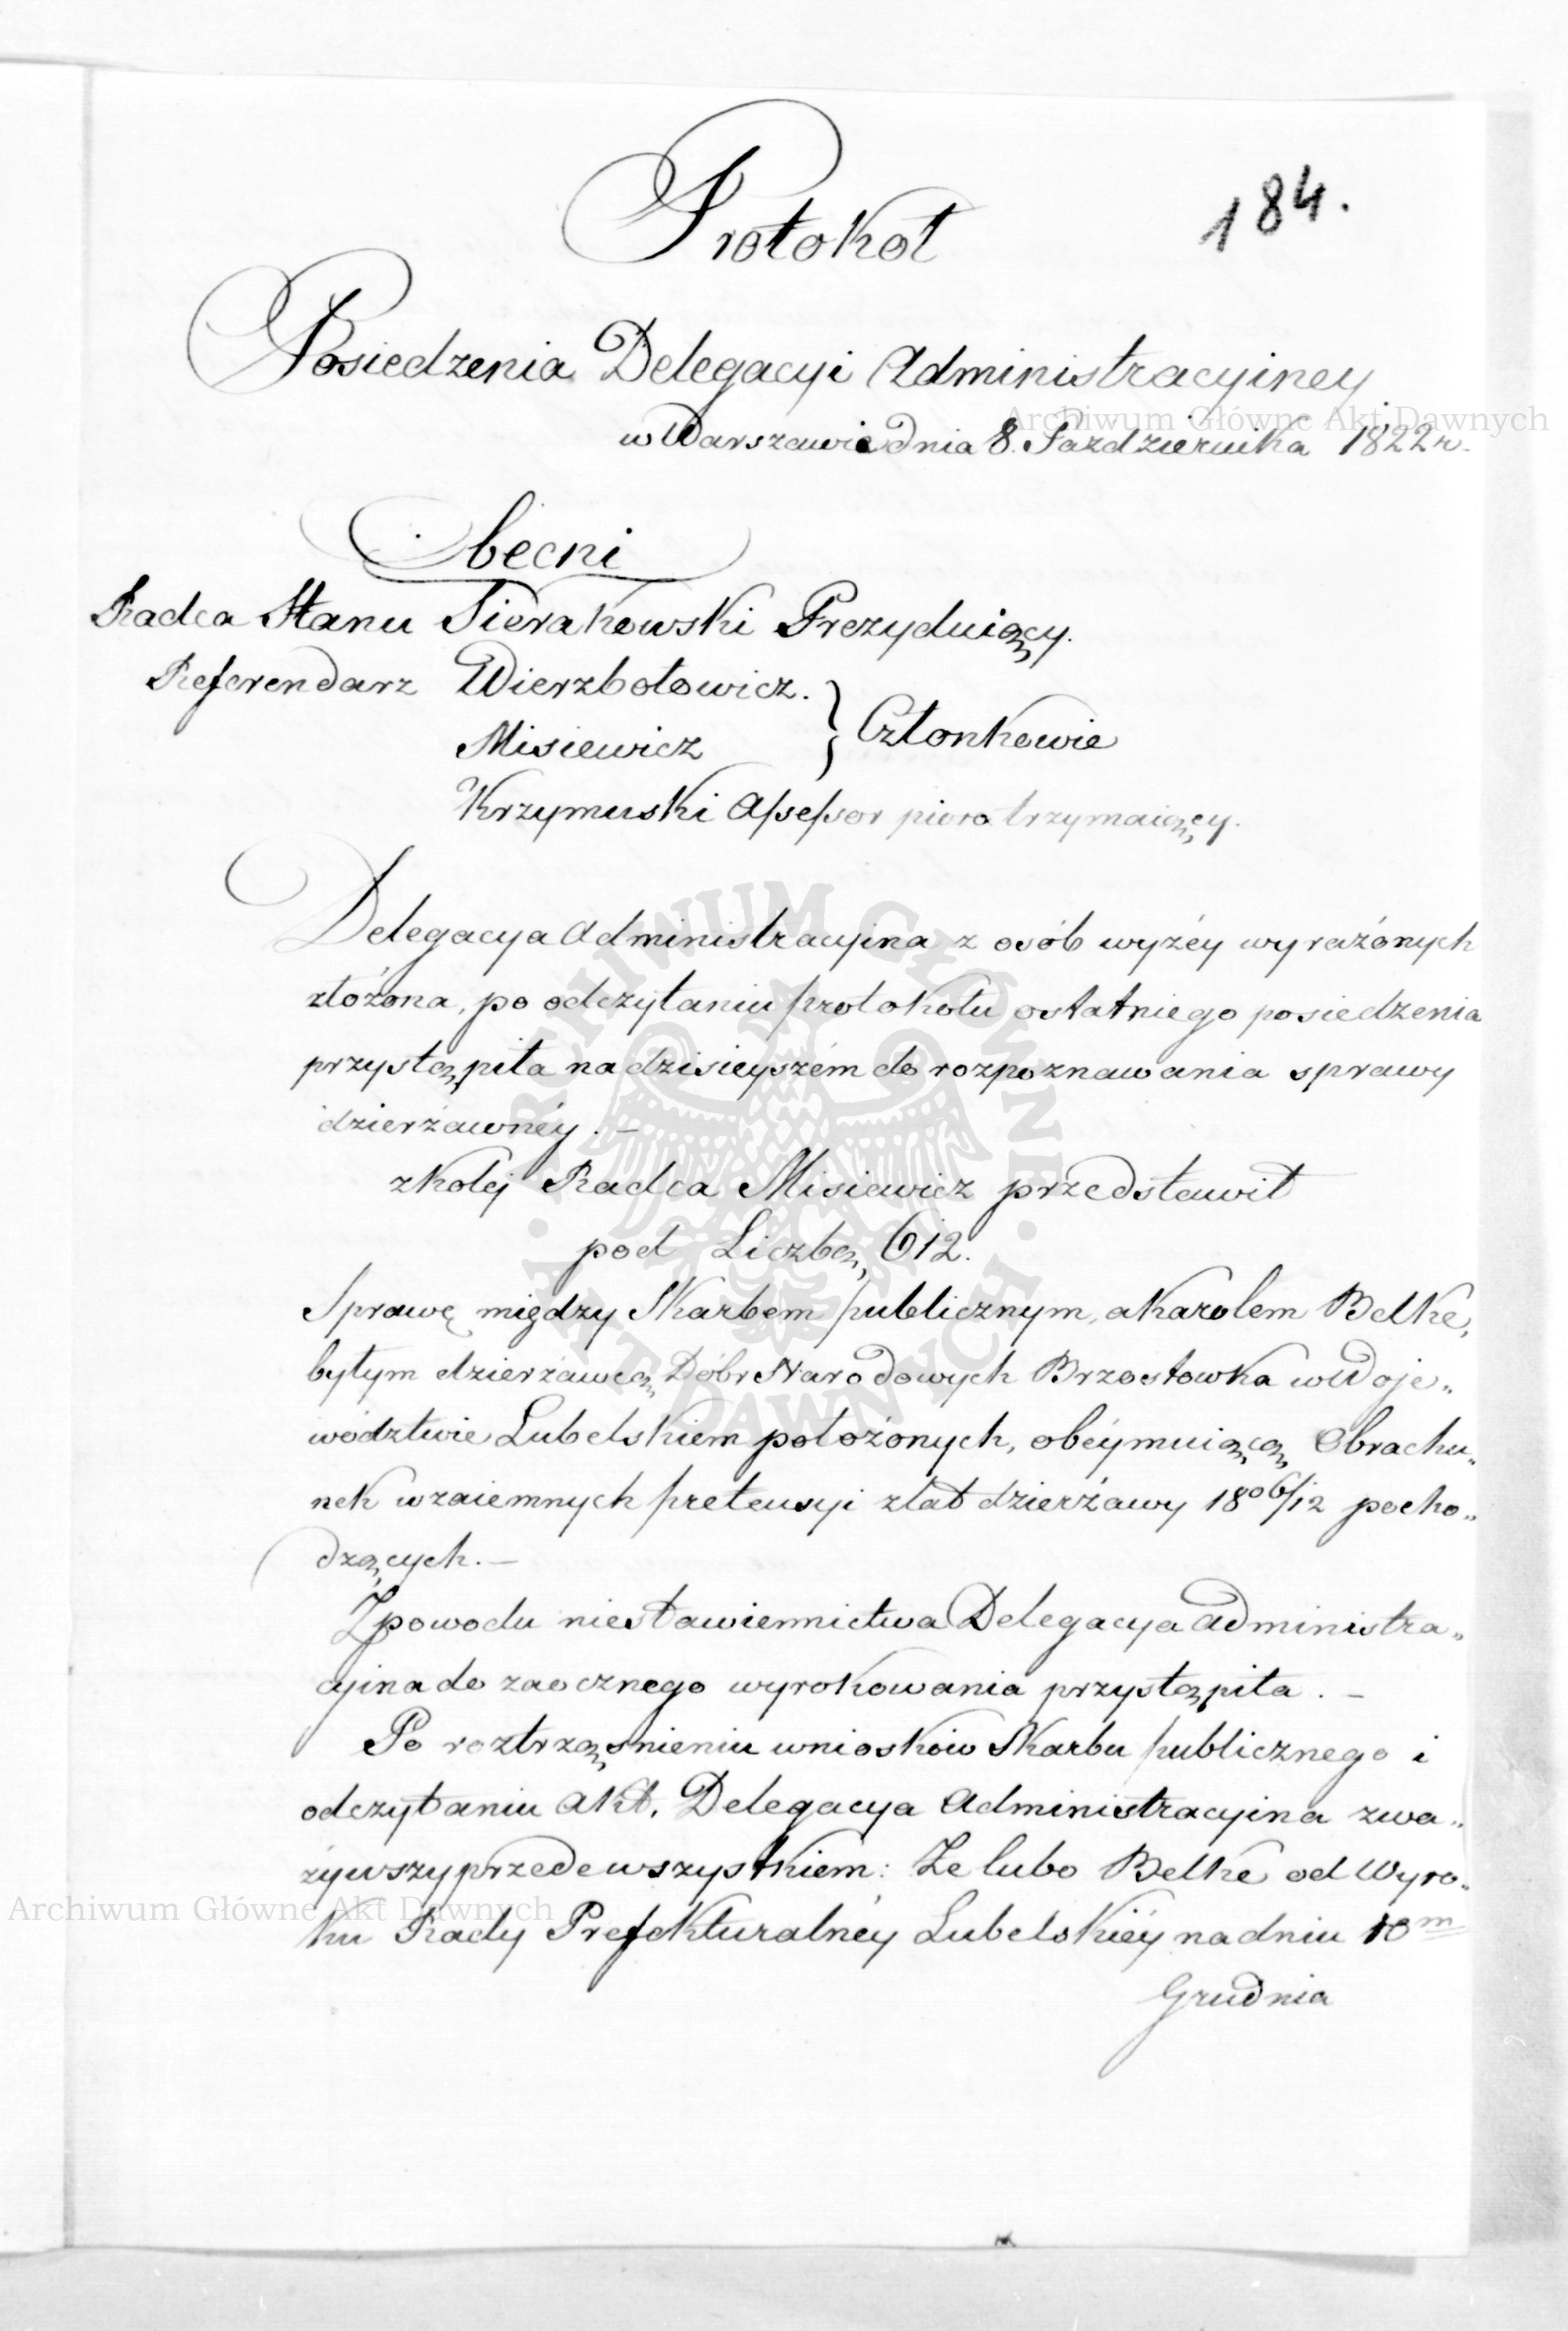 184.
Protokoł
Posiedzenia Delegacyi Administracyiney
w Warszawie dnia 8. Pazdziernika 1822 r.
Obecni
Radca Stanu Sierakowski Prezyduiący.
Referendarz Wierzbołowicz.
Misiewicz } Członkowie
Krzymuski Assessor pioro trzymaiący.
Delegacya Administracyina z osób wyżéy wyrażónych
złóżona, po odczytaniu protokołu ostatniego posiedzenia
przystąpiła na dzisieyszém do rozpoznawania sprawy
dzierżawnéy. –
z koléj Radca Misiewicz przedstawił
pod Liczbą 612.
Sprawę między Skarbem publicznym, a Karolem Belke,
byłym dzierżawcą Dóbr Narodowych Brzostowka w Woje„
wództwie Lubelskiem położonych, obéymuiącą Obrachu„
nek wzaiemnych pretensyi z lat dzierżawy 1806/12 pocho„
dzących. –
Z powodu niestawiennictwa Delegacya administra„
cyina do zaocznego wyrokowania przystąpiła. –
Po roztrząśnieniu wniosków Skarbu publicznego i
odczytaniu akt, Delegacya Administracyina zwa„
żywszy przede wszystkiem: Ze lubo Belke od Wyro„
ku Rady Prefekturalnéy Lubelskiéy na dniu 10m
Grudnia
Archiwum Główne Akt Dawnych
Archiwum Główne Akt Dawnych
ARCHIWUM GŁÓWNE AKT DAWNYCH